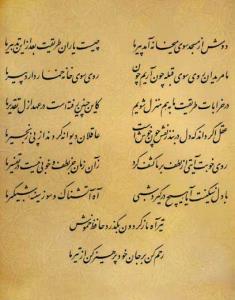 دوش از مسجد سوی میخانه آمد پیر ما چیست یاران طریقت بعد ازین تدبیر ما
ما مریدان روی سوی قبله چون آریم چون روی سوی خانه خمار دارد پیر ما
در خرابات طریقت ما بهم منزل شویم کاین چنین رفته است در عهد ازل تقدیر ما
عقل اگر داند که دل در بند زلفش چون خوشست عاقلان دیوانه گردند از پی زنجیر ما
روی خوبت آیتی از لطف بر ما کشف کرد زان زمان جز لطف و خوبی نیست در تفسیر ما
با دل سنگینت آیا هیچ درگیرد شبی آه آتشناک و سوز سینه شبگیر ما
تیر آه ما ز گردون بگذرد حافظ خموش
رحم کن بر جان خود پرهیز کن از تیر ما